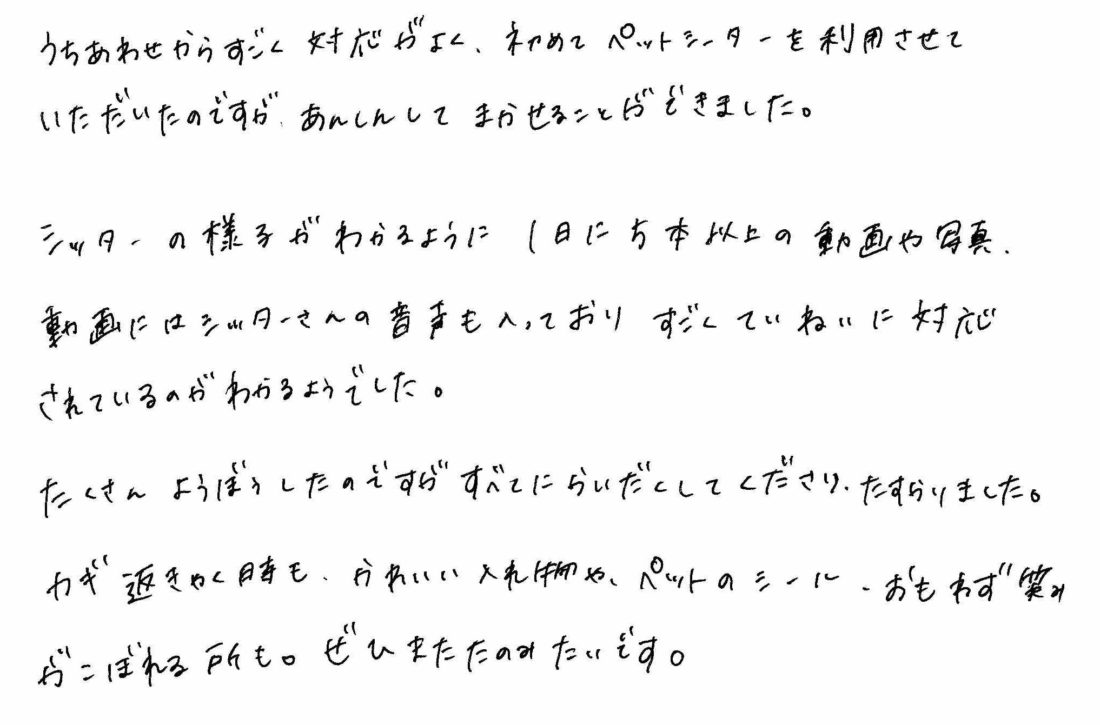 うちあわせからすごく対応がよく、初めてペットシーターを利用させて
いただいたのですが、あんしんしてまかせることができました。
シッターの様子がわかるように1日に5本以上の動画や写真、
動画にはシッターさんの音声も入っておりすごくていねいに対応
されているのがわかるようでした。
たくさんようぼうしたのですがすべてにらいだくしてくださり、たすらりました。
カギ返きゃく時も、かわいい入れ物や、ペットのシール、おもわず笑み
がこぼれる所も。ぜひまたたのみたいです。